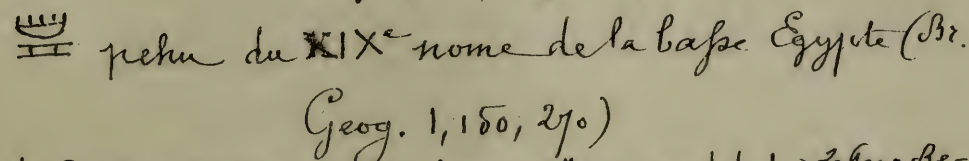 pehu du XIXe nome de la basse Égypte (Br.
Geog. 1, 150, 270)